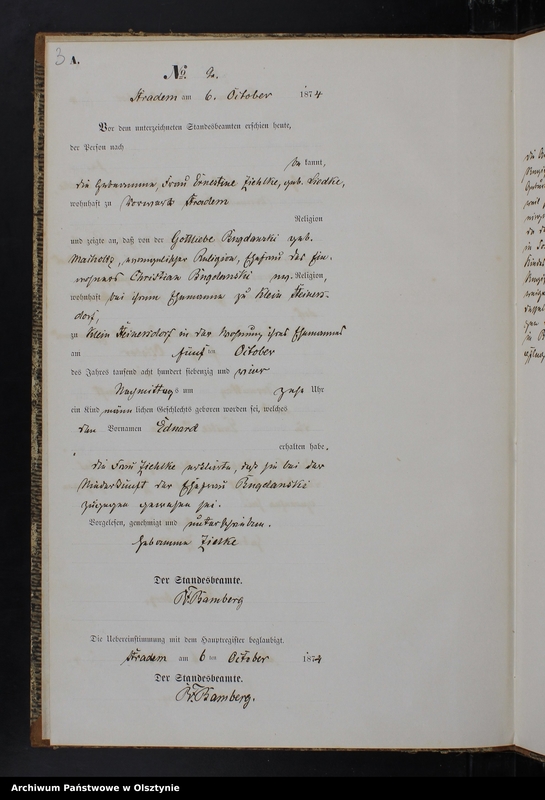 3 A.
No. 2.
Stradem am 6. October 1874
Vor dem unterzeichneten Standesbeamten erschien heute,
der Person nach
be kannt,
die Hebeamme, Frau Ernestine Ziehlke, geb. Liedke,
wohnhaft zu Vorwerk Stradem
Religion
und zeigte an, daß von der Gottliebe Bogdanski geb.
evangelischer Religion, Ehefrau des Ein-
wohners Christian Bogdanski ev. Religion,
wohnhaft bei ihrem Ehemanne zu Klein Heiners-
dorf,
zu Klein Heinersdorf in der Wohnung ihres Ehemannes
am fünf ten October
des Jahres tausend acht hundert siebenzig und vier
Nachmittags um zehn Uhr
ein Kind männ lichen Geschlechts geboren worden sei, welches
den Vornamen Eduard
erhalten habe.
die Frau Ziehlke erklärte, daß sie bei der
Niederkunft der Ehefrau Bogdanski
zugegen gewesen sei.
Vorgelesen, genehmigt und unterschrieben.
Hebeamme Zielke
Der Standesbeamte.
Bamberg
Die Uebereinstimmung mit dem Hauptregister beglaubigt.
Stradem am 6 ten October 1874
Der Standesbeamte.
Bamberg.
Archiwum Państwowe w Olsztynie